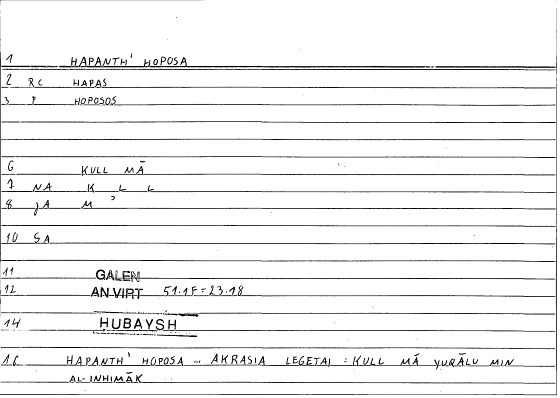 1 HAPANTH' HOPOSA
2 RC HAPAS
3 P HOPOSOS
6 KULL MĀ
7 NA K L L
8 JA M ʾ
10 SA
11 GALEN
12 AN.VIRT 51.1F=23.18
14 HUBAYSH
16 HAPANTH' HOPOSA ... AKRASIA LEGETAI : KULL MĀ YUQĀLU MIN
AL-INHIMĀK